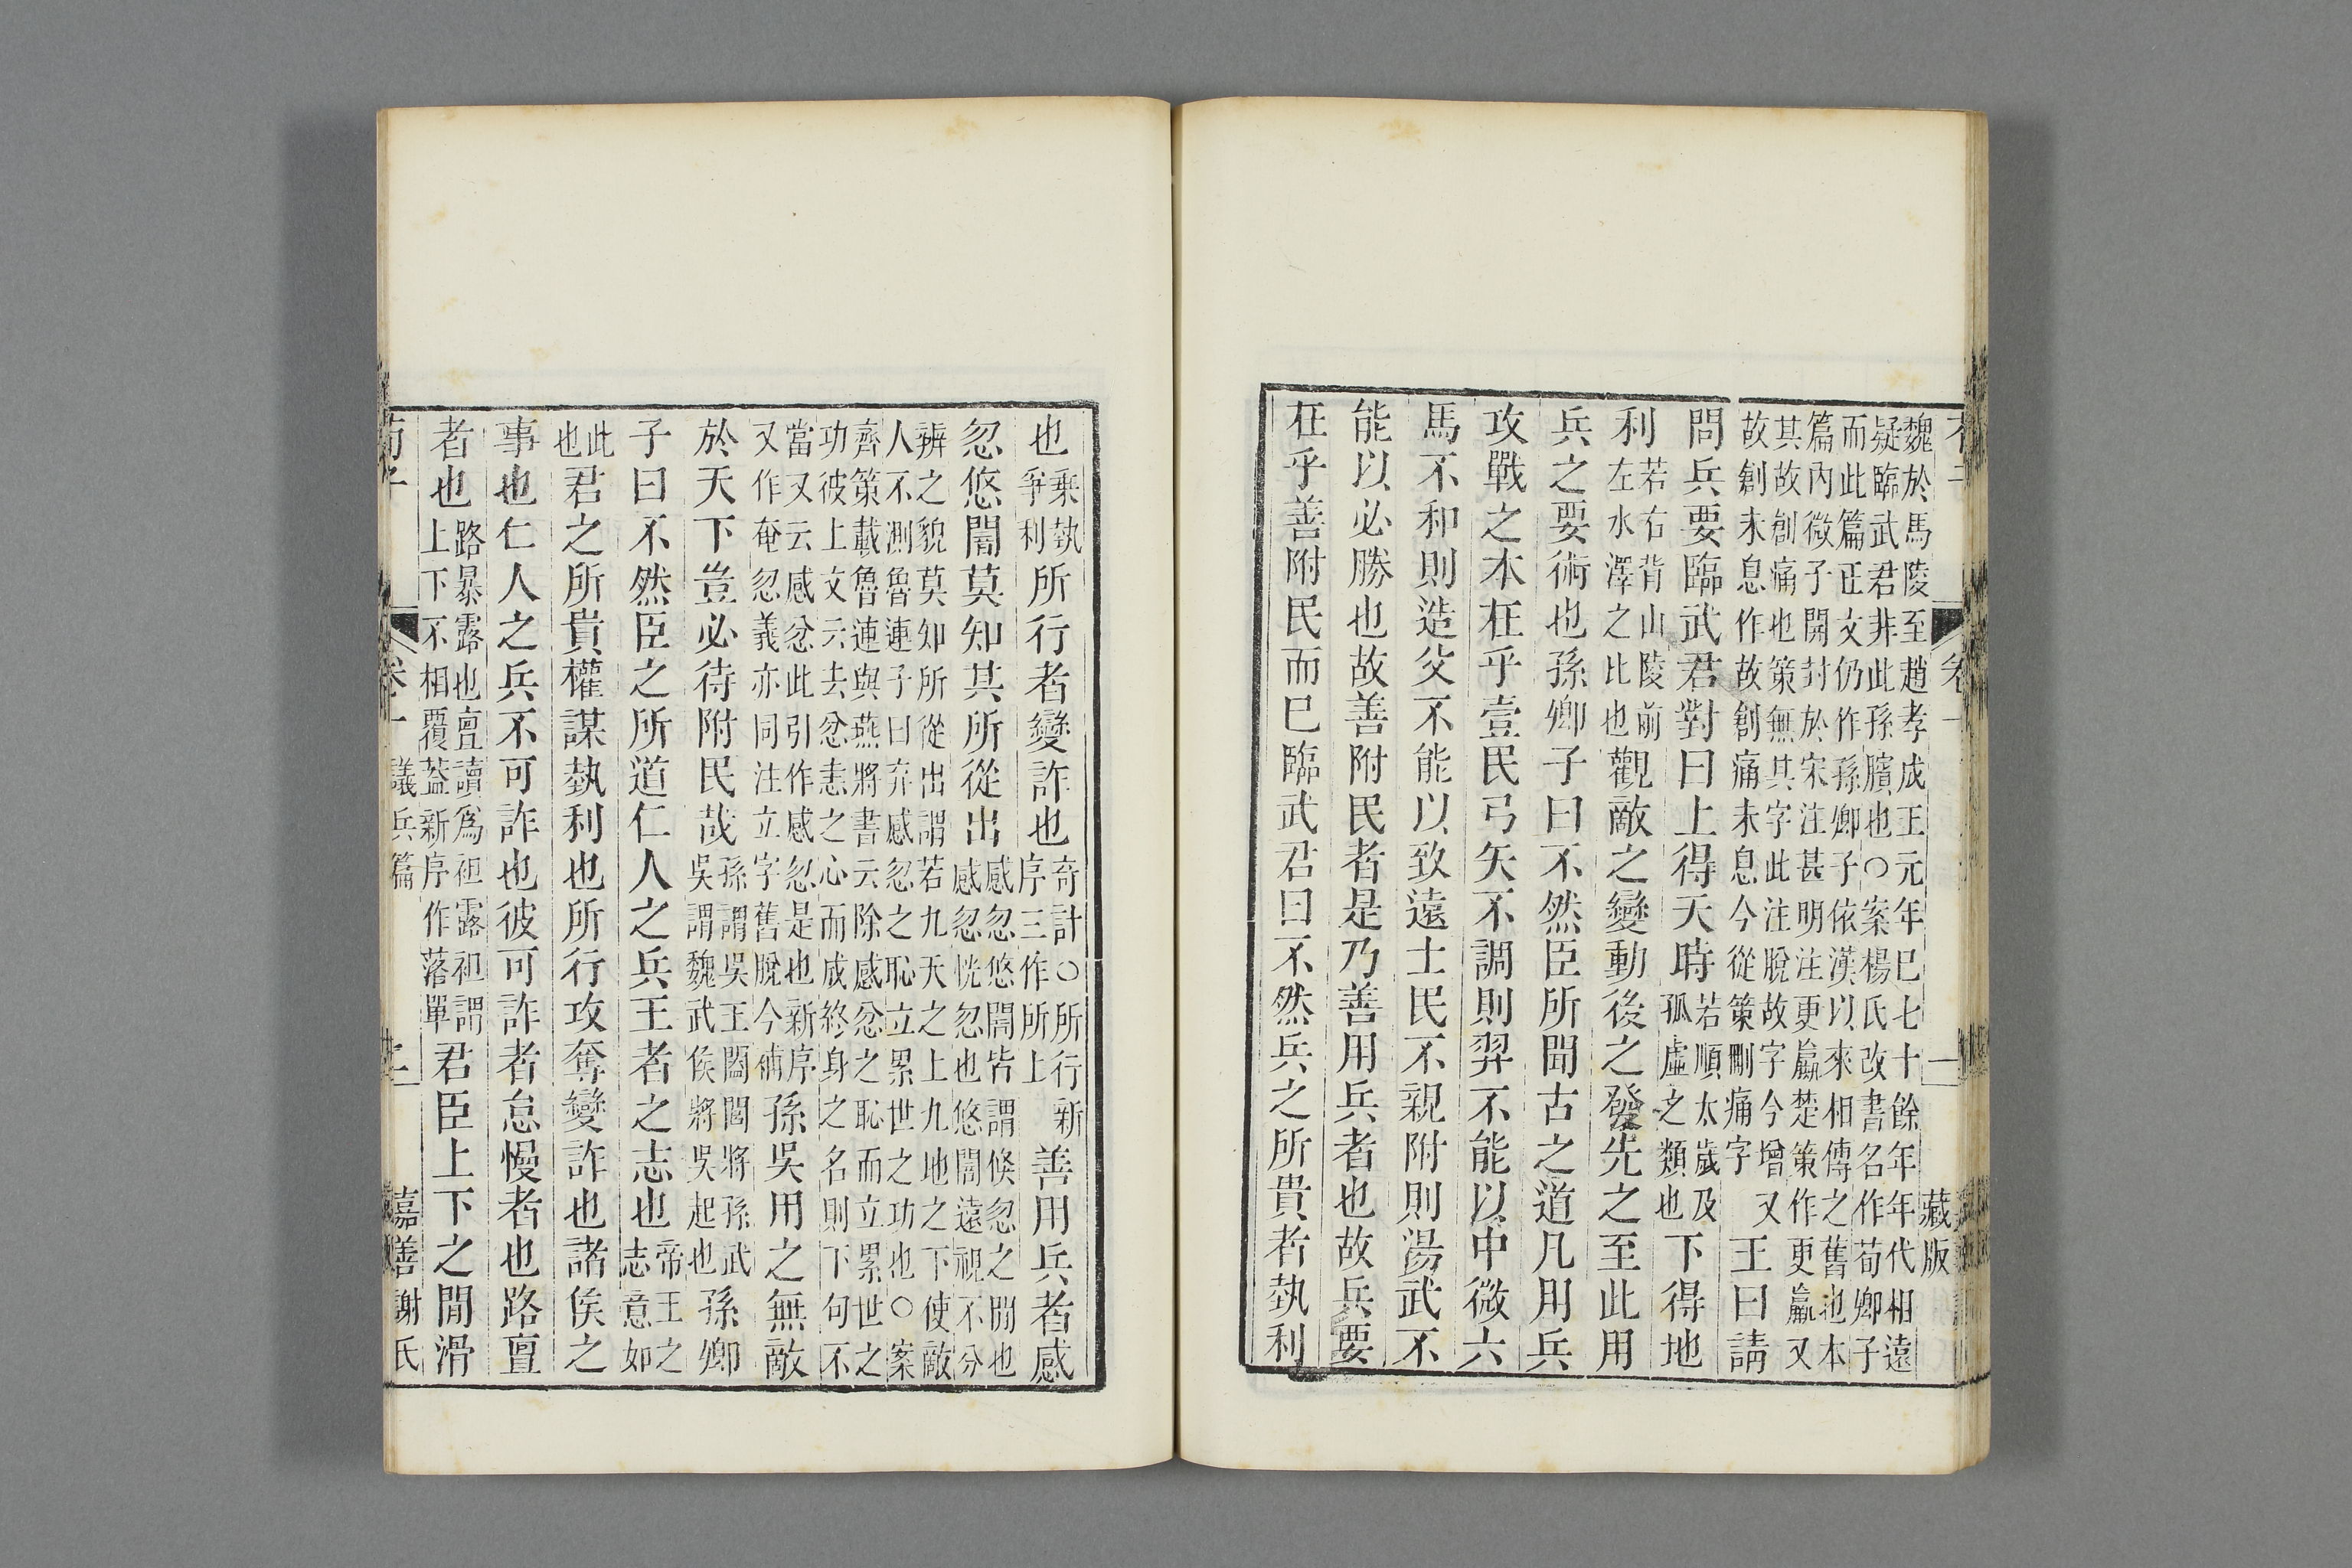 魏於馬陵至趙孝成王元年已七十餘年年代相遠
疑臨武君非此孫臏也○案楊氏改書名作荀卿子
而此篇正文仍作孫卿子依漢以來相傳之舊也本
篇內微子開封於宋注甚明注更嬴楚策作更嬴又
其故創痛也策無其字此注脫故字今增又
故創未息作故創痛未息今從策刪痛字
王曰請
問兵要臨武君對曰上得天時
若順太歲及
孤虛之類也
下得地
利
若右背山陵前
左水澤之比也
觀敵之變動後之發先之至此用
兵之要術也孫卿子曰不然臣所聞古之道凡用兵
攻戰之本在乎壹民弓矢不調則羿不能以中微六
馬不和則造父不能以致遠士民不親附則湯武不
能以必勝也故善附民者是乃善用兵者也故兵要
在乎善附民而已臨武君曰不然兵之所貴者埶利
藏版
也
乘埶
爭利
所行者變詐也
奇計○所行新
序三作所上
善用兵者感
忽悠闇莫知其所從出
感忽悠闇皆謂倏忽之閒也
感忽恍忽也悠闇遠視不分
辨之貌莫知所從出謂若九天之上九地之下使敵
人不測魯連子曰弃感忽之恥立累世之功也○案
齊策載魯連與燕將書云除感忿之恥而立累世之
功彼上文云去忿恚之心而成終身之名則下句不
當又云感忿此引作感忽是也新序
又作奄忽義亦同注立字舊脫今補
孫吳用之無敵
於天下豈必待附民哉
孫謂吳王闔閭將孫武
吳謂魏武侯將吳起也
孫卿
子曰不然臣之所道仁人之兵王者之志也
帝王之
志意如
此
也
君之所貴權謀埶利也所行攻奪變詐也諸侯之
事也仁人之兵不可詐也彼可詐者怠慢者也路亶
者也
路暴露也亶讀爲袒露袒謂
上下不相覆葢新序作落單
君臣上下之閒滑
荀子
卷十
議兵篇
嘉善謝氏